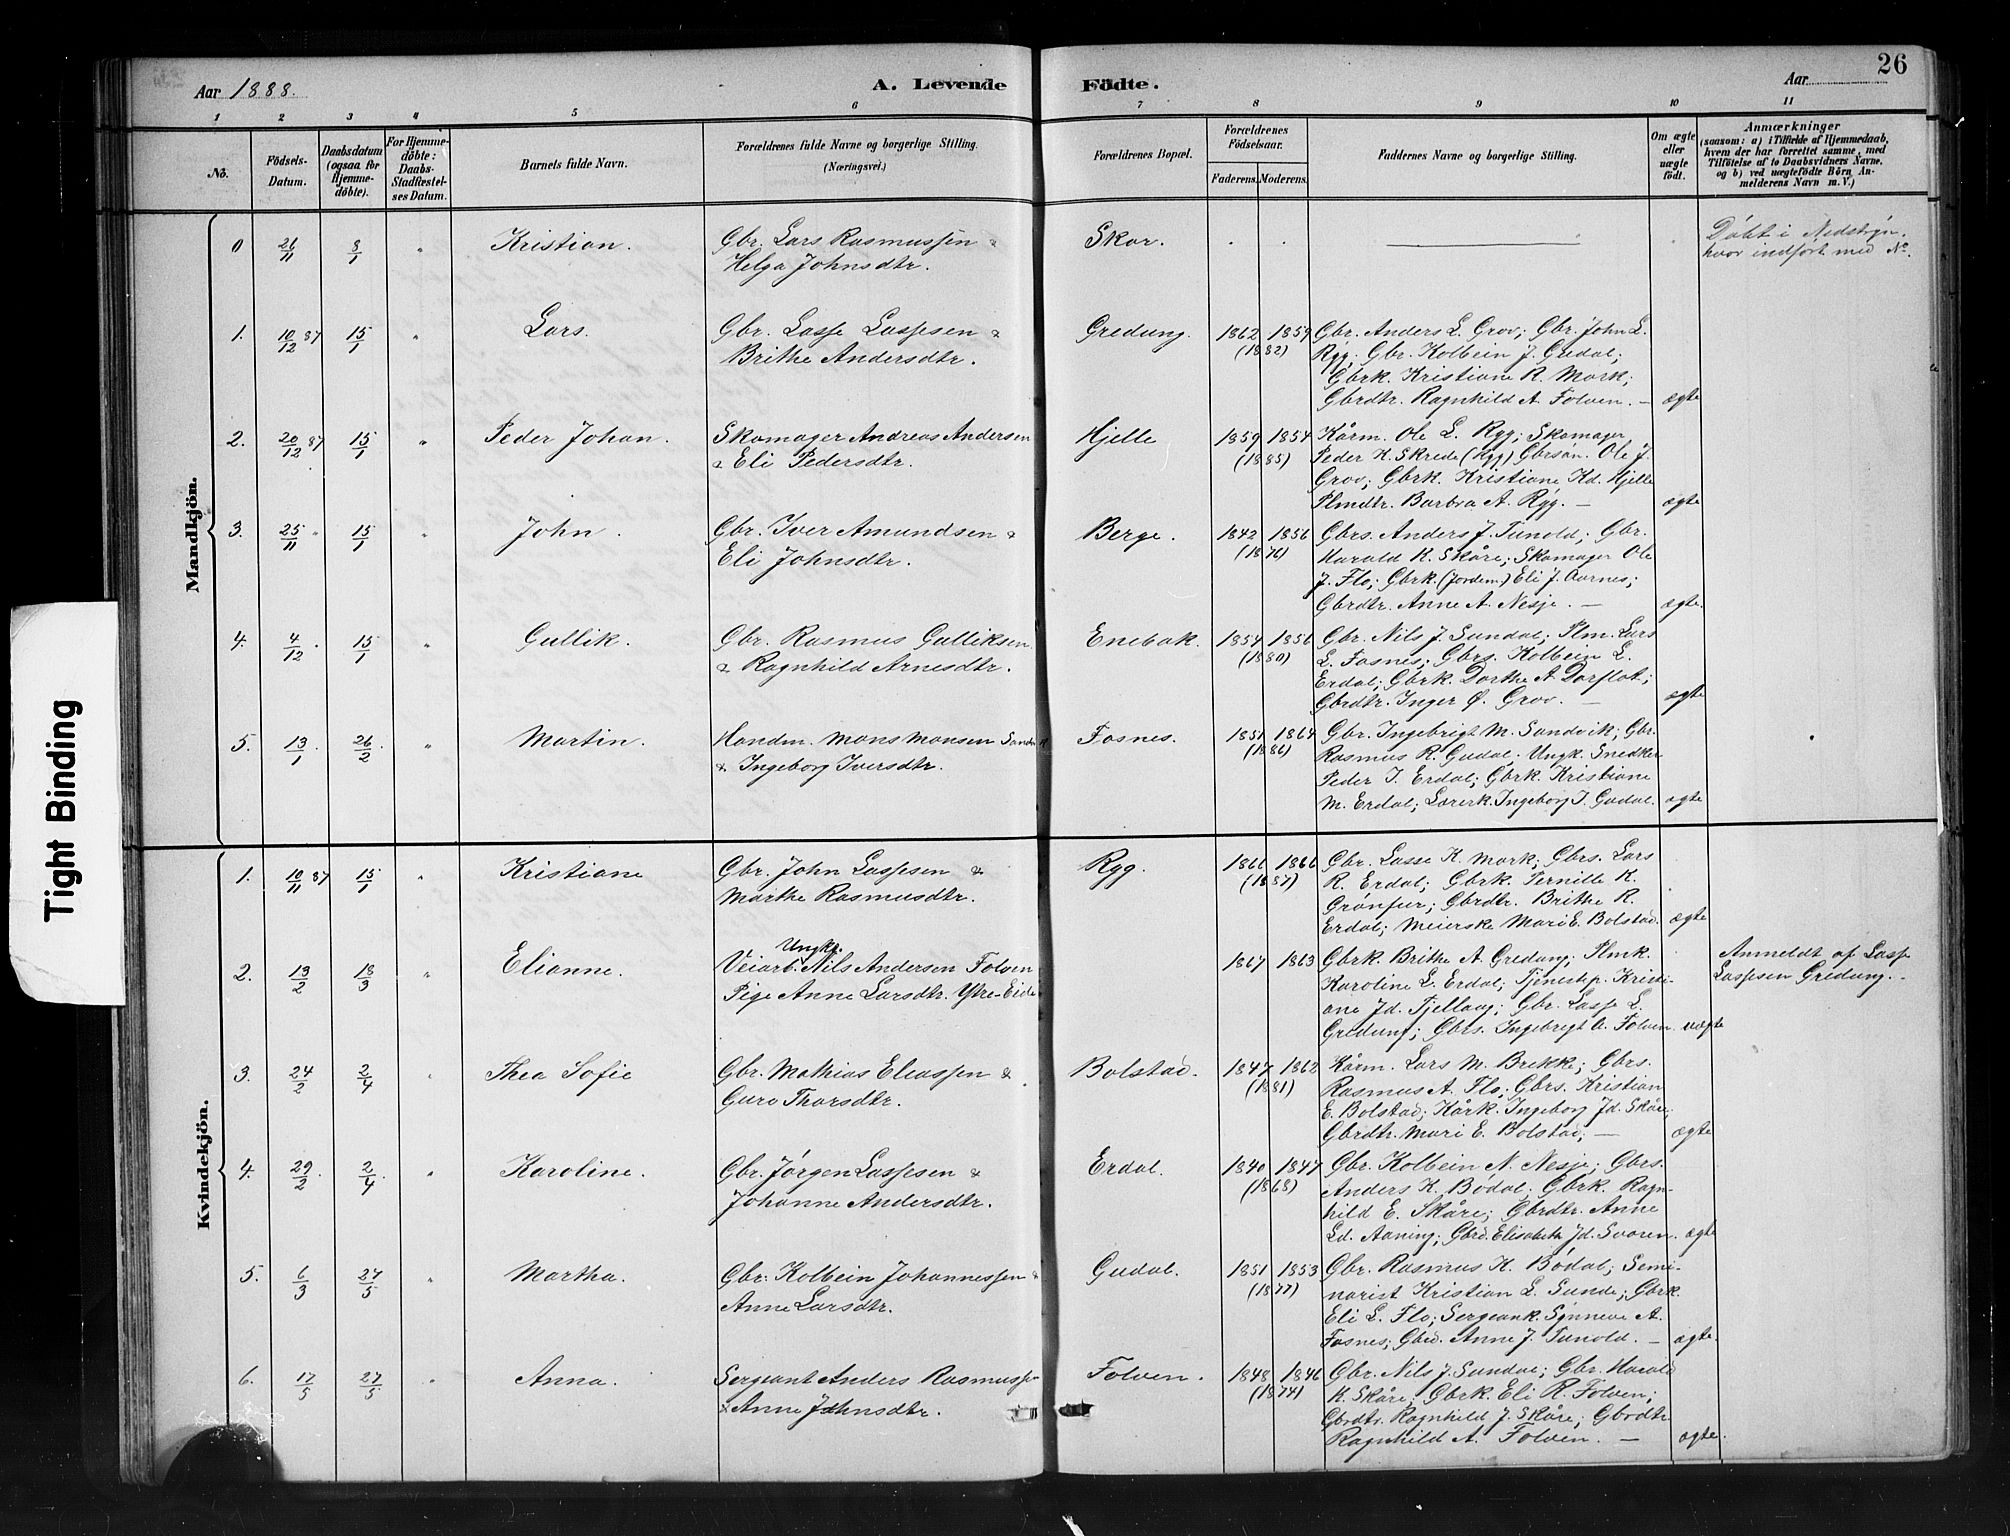 26
Aar 1888.
A. Levende Födte.
Aar
1 2 3 4 5 6 7 8 9 10 11
No.
Födsels-Datum.
Daabsdatum (ogsaa for Hjemmedöbte).
For Hjemmedöbte: Daabs-Stadfæstelses Datum.
Barnets fulde Navn.
Forældrenes fulde Navne og borgerlige Stilling.
(Næringsvei.)
Forældrenes Bopæl.
Forældrenes Födselsaar.
Faderens. Moderens.
Faddernes Navne og borgerlige Stilling.
Om ægte eller uægte födt.
Anmærkninger
(saasom: a) i Tilfælde af Hjemmedaab,
hvem der har forrettet samme, med
Tilföielse af to Daabsvidners Navne,
og b) ved uægtefödte Börn Anmelderens Navn m. V.)
Tight Binding
Mandkjön.
0 26/11 8/1 " Kristian. Gbr. Lars Rasmussen &
Helga Johnsdtr.
Skor.
Döbt i Nedstryn,
hvor indført med No.
1. 10/12 87 15/1 " Lars. Gbr. Lasse Lassesen &
Brithe Andersdtr.
Gredung. 1862 1859
(1882)
Gbr. Anders L. Grov; Gbr. John L.
Ryg; Gbr. Kolbein J. Gredal;
Gbrk. Kristiane R. Mork;
Gbrdtr. Ragnhild A. Folven. — ægte
2. 20/12 87 15/1 " Peder Johan. Skomager Andreas Andersen
& Eli Pedersdtr.
Hjelle 1859 1854
(1885)
Kårm. Ole L. Ryg; Skomager
Peder K. Skrede (Ryg) Gbrsön. Ole J.
Grov; Gbrk. Kristiane Kd. Hjelle
Plmdtr. Barbra A. Ryg. — ægte
3. 25/11 " 15/1 John. Gbr. Iver Amundsen &
Eli Johnsdtr.
Berge. 1842 1856
(1876)
Gbrs. Anders J. Tunold; Gbr.
Harald K. Skåre; Skomager Ole
J. Flo; Gbrk. (Jordem.) Eli J. Aarnes;
Gbrdtr. Anne A. Nesje. — ægte.
4. 4/12 15/1 " Gullik. Gbr. Rasmus Gulliksen
& Ragnhild Arnesdtr.
Enebak. 1854 1856
(1880)
Gbr. Nils J. Sundal; Plm. Lars
L. Fosnes; Gbrs. Kolbein L.
Erdal; Gbrk. Dorthe A. Dorflot;
Gbrdtr. Inger Ø. Grov. — ægte
5. 13/1 26/2 " Martin. Handm. Mons Monsen
& Ingeborg Iversdtr.
Fosnes. 1851 1864
(1886)
Gbr. Ingebrigt M. Sandvik; Gbr.
Rasmus R. Gudal; Ungk. Snedker
Peder I. Erdal; Gbrk. Kristiane
M. Erdal; Lærerk. Ingeborg I. Gudal. ægte
Kvindekjön.
1. 10/11 87 15/1 " Kristiane Gbr. John Lassesen &
Marthe Rasmusdtr.
Ryg. 1866 1866
(1887)
Gbr. Lasse K. Mork; Gbrs. Lars
R. Erdal; Gbrk. Pernille K.
Grönfur; Gbrdtr. Brithe R.
Erdal; Meierske Mari E. Bolstad. ægte
2. 13/2 18/3 " Elianne. Ungk.
Veiarb. Nils Andersen Folven
Pige Anne Larsdtr. Ytre-Eide
1867 1863
Gbrk. Brithe A. Gredung; Plmk.
Karoline L. Erdal; Tjenestp. Kristi-
ane Jd. Tjellaug; Gbr. Lasse L.
Gredung; Gbrs. Ingebrigt A. Folven. uægte
Anmeldt af Lasse
Lassesen Gredung.
3. 24/2 2/4 " Thea Sofie Gbr. Mathias Eliassen &
Guro Thorsdtr.
Bolstad. 1847 1862
(1881)
Kårm. Lars M. Brekke; Gbrs.
Rasmus A. Flo; Gbrs. Kristian
E. Bolstad; Kårk. Ingeborg Jd. Skåre;
Gbrdtr. Mari E. Bolstad; — ægte
4. 29/2 2/4 " Karoline. Gbr. Jørgen Lassesen &
Johanne Andersdtr.
Erdal. 1840 1847
(1868)
Gbr. Kolbein N. Nesje; Gbrs.
Anders K. Bödal; Gbrk. Ragn-
hild E. Skåre; Gbrdtr. Anne
Ld. Aaning; Gbrd. Elisabeth Jd. Svoren. ægte
5. 6/3 27/5 " Martha. Gbr. Kolbein Johannessen &
Anne Larsdtr.
Gudal. 1851 1853
(1877)
Gbr. Rasmus K. Bödal; Semi-
narist Kristian L. Sunde; Gbrk.
Eli L. Flo; Sergeank. Synneve A.
Fosnes; Gbrd. Anne J. Tunold. — ægte.
6. 17/5 27/5 " Anna. Sergeant Anders Rasmussen
& Anne Johnsdtr.
Folven. 1848 1846
(1874)
Gbr. Nils J. Sundal; Gbr. Harald
K. Skåre; Gbrk. Eli R. Folven;
Gbrdtr. Ragnhild J. Skåre; Gbrdtr.
Ragnhild A. Folven. — ægte.